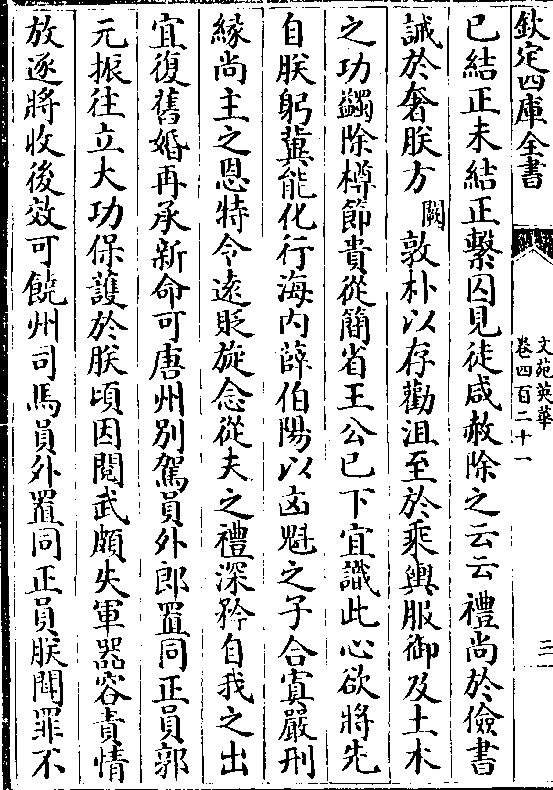 欽定四庫全書
文苑英華
卷四百二十一
三
已結正未結正繫囚見徒咸赦除之云云禮尚於儉書
誡於奢朕方闕敦朴以存勸沮至於乘輿服御及土木
之功蠲除樽節貴從簡省王公已下宜識此心欲將先
自朕躬冀能化行海內薛伯陽以凶魁之子合寘嚴刑
緣尚主之恩特令遠貶旋念從夫之禮深矜自我之出
宜復舊婚再承新命可唐州別駕員外郎置同正員郭
元振往立大功保護於朕頃因閱武頗失軍容責情
放逐將收後效可饒州司馬員外置同正員朕聞罪不